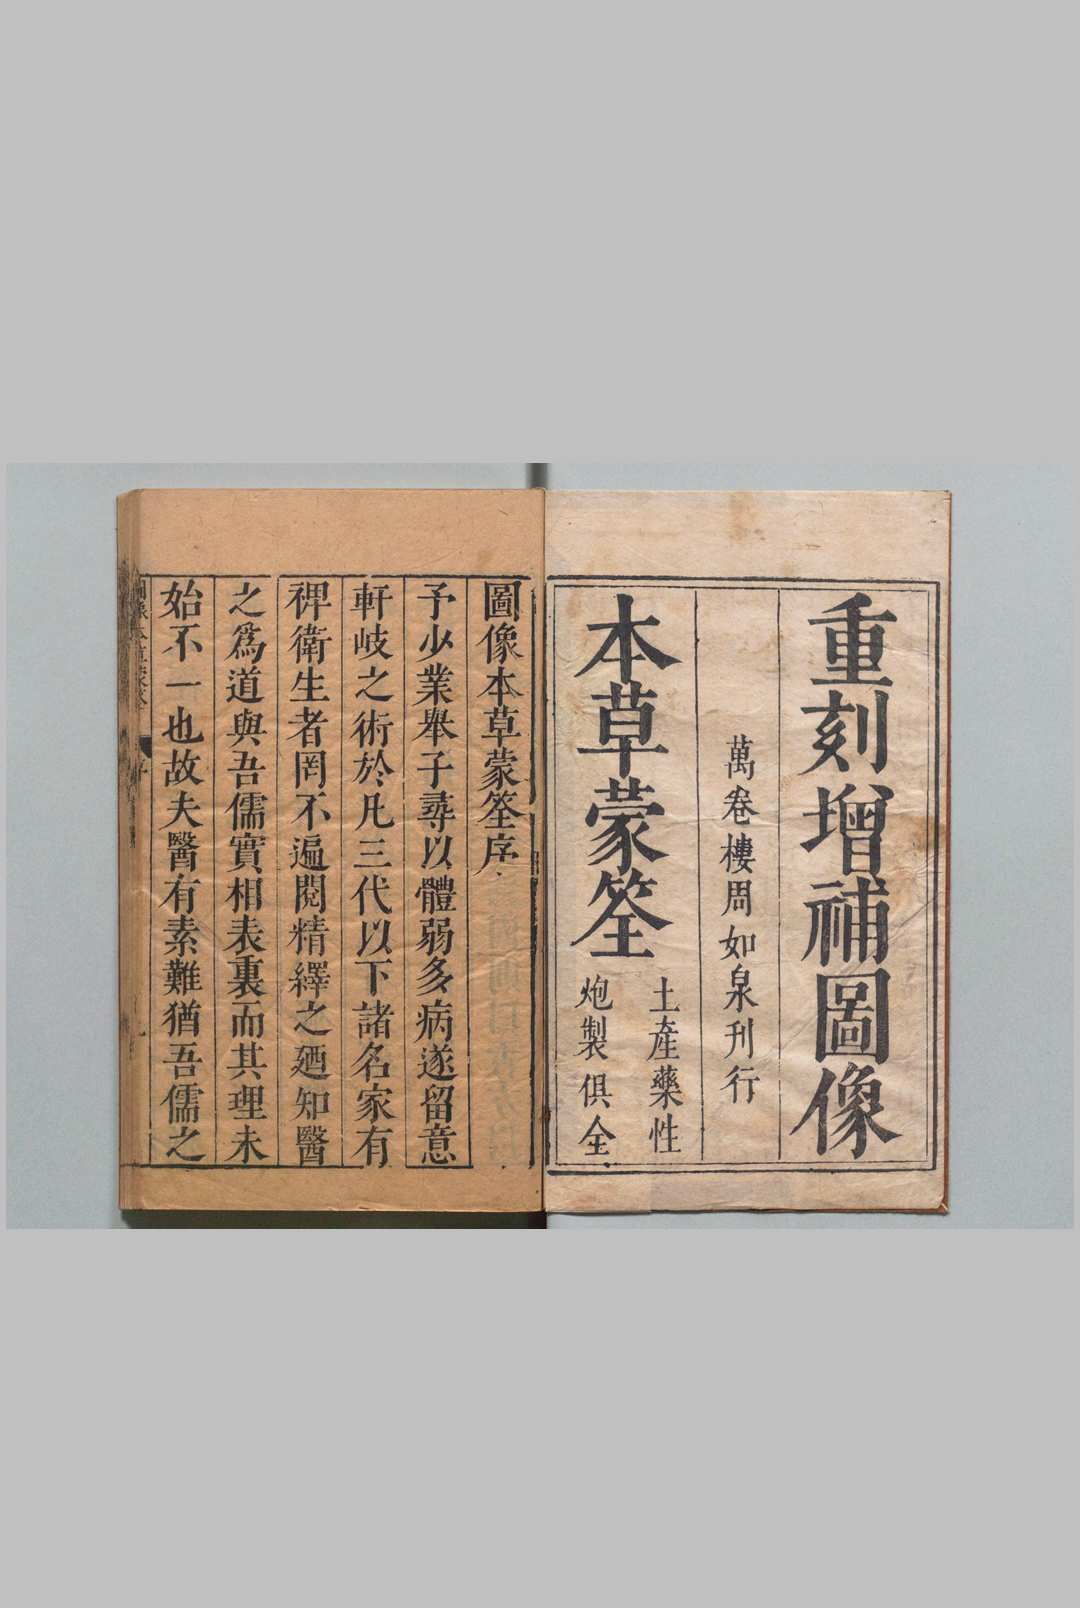 重刻增補圖像
萬卷樓周如泉刊行
本草蒙筌
土產藥性
炮製俱全
圖像本草蒙筌序
予少業舉子尋以體弱多病遂留意
軒岐之術於凡三代以下諸名家有
裨衛生者罔不遍閱精繹之廼知醫
之爲道與吾儒實相表裏而其理未
始不一也故夫醫有素難猶吾儒之